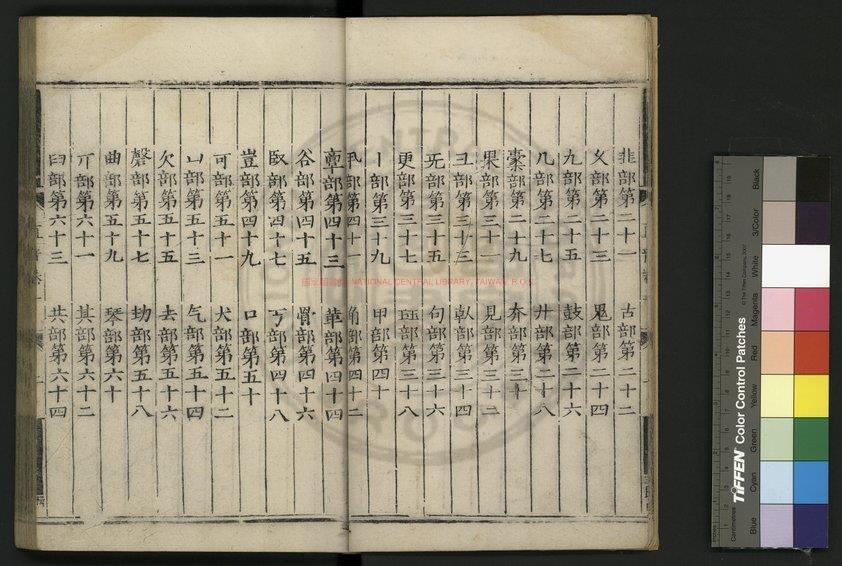 韭部第二十一 古部第二十二
久部第二十三 鬼部第二十四
九部第二十五 鼓部第二十六
几部第二十七 廾部第二十八
櫜部第二十九 夲部第三十
果部第三十一 見部第三十二
彐部第三十三 倝部第三十四
旡部第三十五 句部第三十六
更部第三十七 珏部第三十八
丨部第三十九 甲部第四十
丮部第四十一 角部第四十二
𩫏部第四十三 華部第四十四
谷部第四十五 骨部第四十六
臤部第四十七 丂部第四十八
豈部第四十九 口部第五十
可部第五十一 犬部第五十二
凵部第五十三 气部第五十四
欠部第五十五 去部第五十六
磬部第五十七 㓞部第五十八
曲部第五十九 琴部第六十
丌部第六十一 其部第六十二
臼部第六十三 共部第六十四
國立圖書館 NATIONAL CENTRAL LIBRARY, TAIWAN, R.O.C.
TIFFEN Color Control Patches
© The Tiffen Company, 2007
Centimetres
Inches
Blue Cyan Green Yellow Red Magenta White 3/Color Black